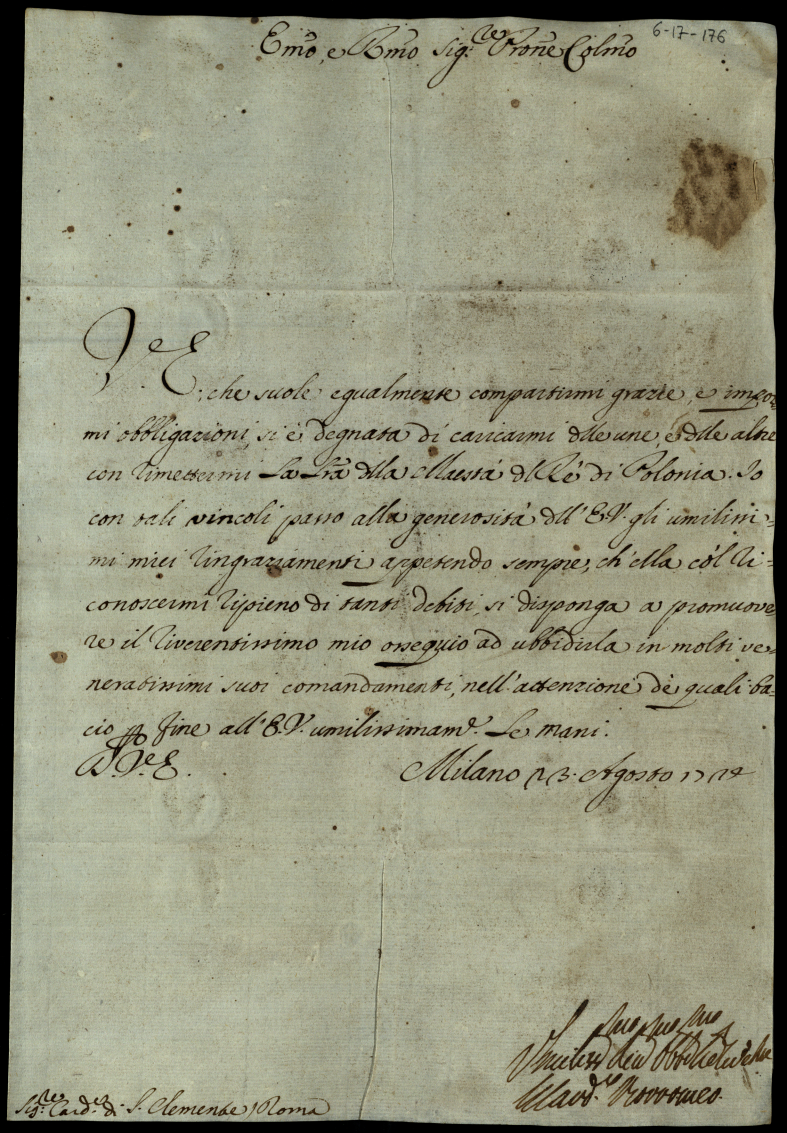 6-17-176
Emo, e Rmo Sig.re Prone Colmo
V.E., che suole egualmente compartirmi grazie, e impor-
mi obbligazioni, si è degnata di caricarmi dlle une, e dlle altre
con rimettermi La Lra dlla Maestà dl Rè di Polonia. Io
con tali vincoli passo alla generosità dll'E.V. gli umilissi-
mi miei ringraziamenti aspetendo sempre, ch'ella cól ri-
conoscermi ripieno di tanti debiti, si disponga a promuove-
re il riverentissimo mio ossequio ad ubbidirla in molti ve-
neratissimi suoi comandamenti, nell'attenzione dè quali ba-
cio p fine all'E.V. umilissimame. Le mani.
D. V.E. Milano 23. Agosto 1714
Umiliss.mo Dev.mo Obbl.mo
Card.e
Sig.re Card.e di S. Clemente / Roma